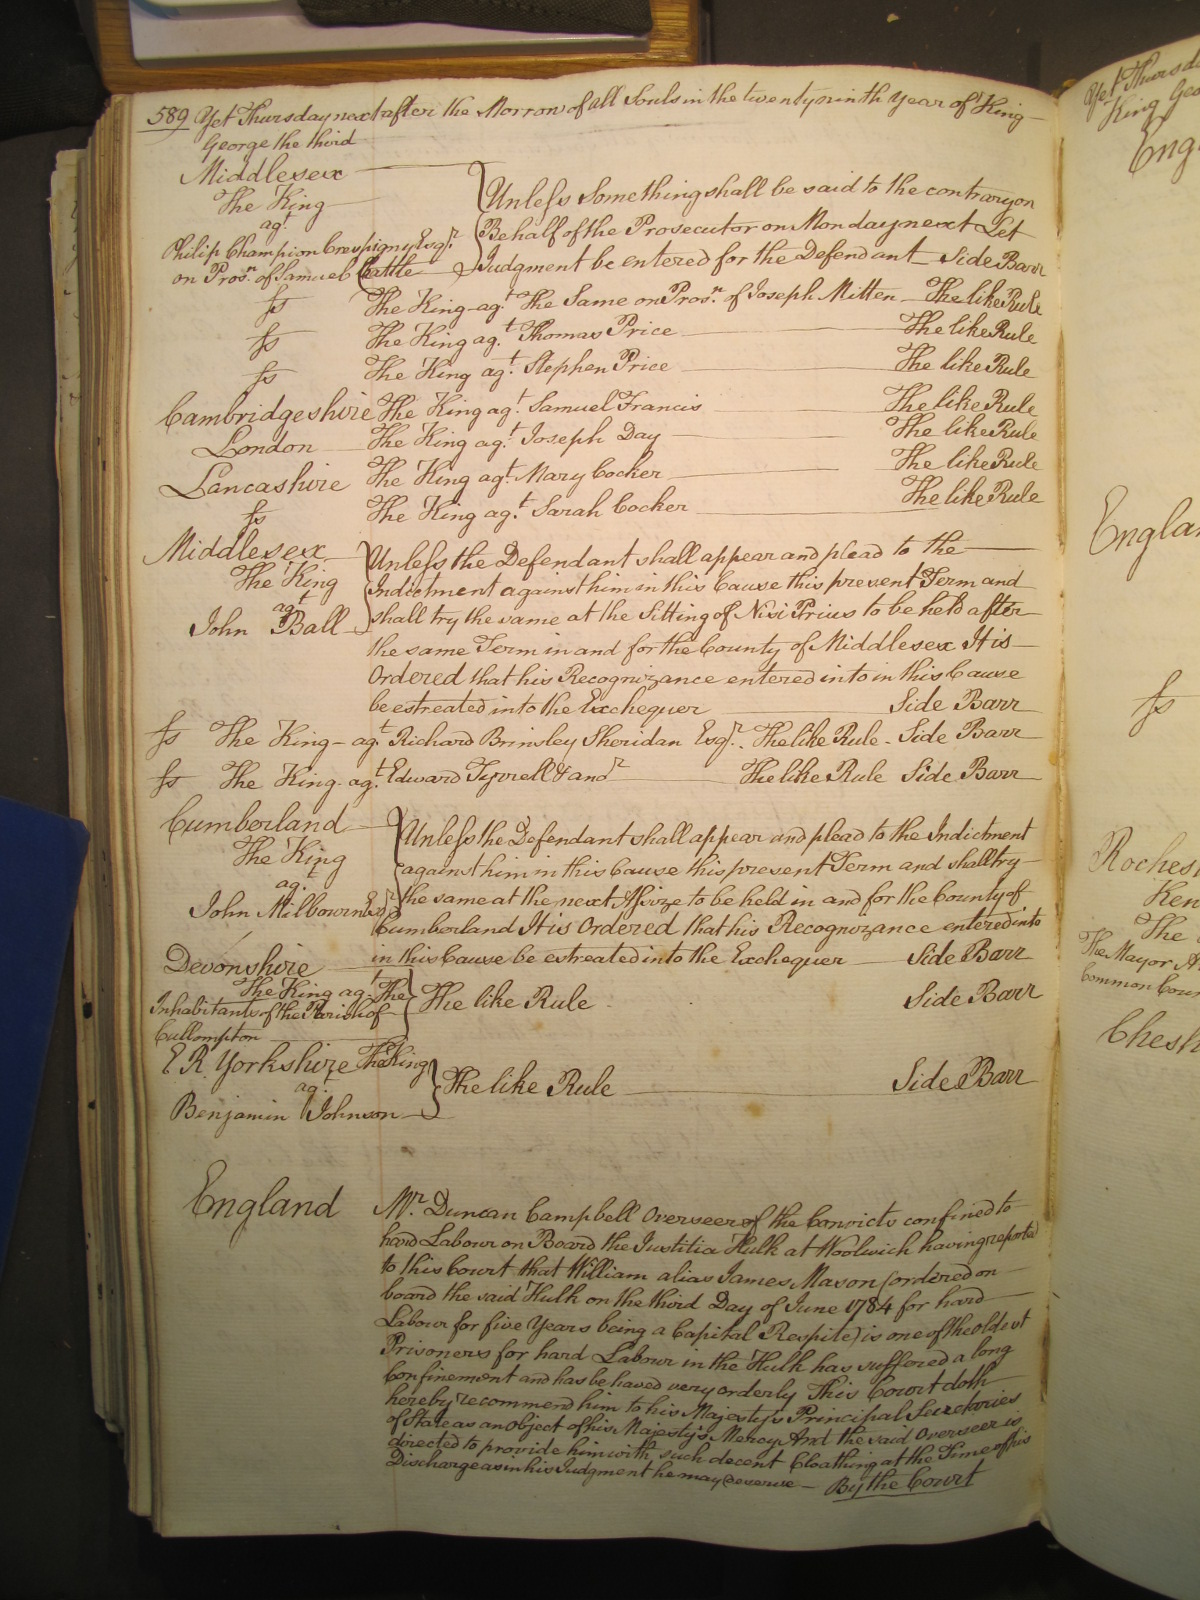 589 Yet Thursday next after the Morrow of all Souls in the twenty ninth Year of King
George the third
Middlesex
The King
agt
Philip Champion Crespigny Esqr.
on Prosn. of Samuel Cattle
Unless Something shall be said to the contrary on
Behalf of the Prosecutor on Monday next Let
Judgment be entered for the Defendant Side Barr
fs The King agt. The Same on Prosn. of Joseph Mitten The like Rule
fs The King agt. Thomas Price The like Rule
fs The King agt. Stephen Price The like Rule
Cambridgeshire The King agt. Samuel Francis The like Rule
London The King agt. Joseph Day The like Rule
Lancashire The King agt. Mary Cocker The like Rule
fs The King agt. Sarah Cocker The like Rule
Middlesex
The King
agt
John Ball
Unless the Defendant shall appear and plead to the
Indictment against him in this Cause this present Term and
shall try the same at the Sitting of Nisi Prius to be held after
the same Term in and for the County of Middlesex It is
Ordered that his Recognizance entered into in this Cause
be estreated into the Exchequer Side Barr
fs The King agt. Richard Brinsley Sheridan Esqr. The like Rule Side Barr
fs The King agt. Edward Tyrrell & anr The like Rule Side Barr
Cumberland
The King
agt.
John Milbourn Esqr
Unless the Defendant shall appear and plead to the Indictment
against him in this Cause this present Term and shall try
the same at the next Assize to be held in and for the County of
Cumberland It is Ordered that his Recognizance entered into
in this Cause be estreated into the Exchequer Side Barr
Devonshire
The King agt. The
Inhabitants of the Parish of
Cullompton
The like Rule Side Barr
E R. Yorkshire The King
agt.
Benjamin Johnson
The like Rule Side Barr
England
Mr. Duncan Campbell Overseer of the Convicts confined to
hard Labour on Board the Justitia Hulk at Woolwich having reported
to this Court that William alias James Mason (ordered on
board the said Hulk on the third Day of June 1784 for hard
Labour for five Years being a Capital Respite) is one of the oldest
Prisoners for hard Labour in the Hulk has suffered a long
Confinement and has behaved very orderly This Court doth
hereby recommend him to his Majesty's Principal Secretaries
of State as an Object of his Majesty's Mercy And the said Overseer is
directed to provide him with such decent Cloathing at the Time of his
Discharge as in his Judgment he may deserve By the Court
Yet Thursda
King Geo
Eng
Englan
fs
Rochest
Ken
The
The Mayor A
Common Coun
Chesh